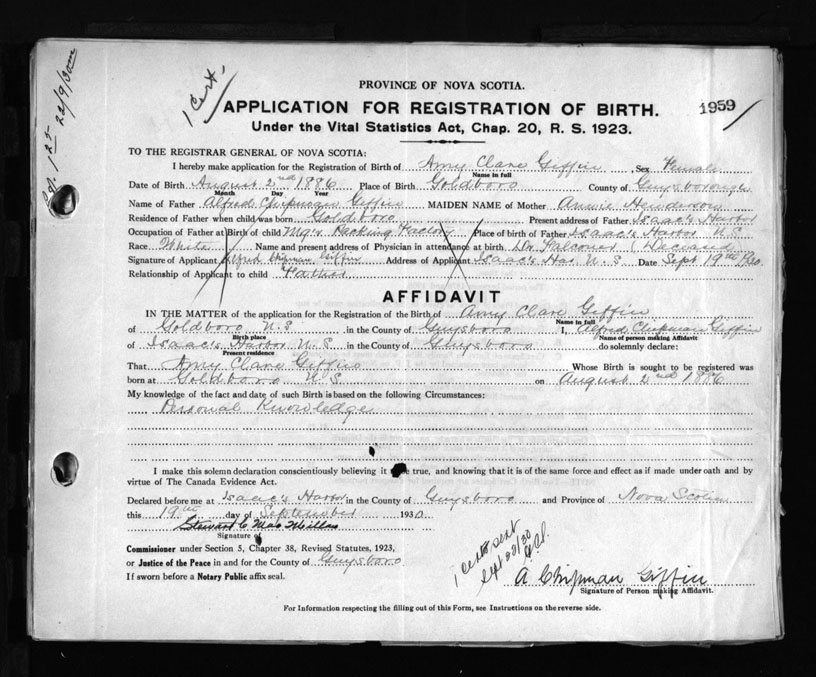 Pd. 1 25 22/9/30
1 Cert.
PROVINCE OF NOVA SCOTIA.
APPLICATION FOR REGISTRATION OF BIRTH.
1959
Under the Vital Statistics Act, Chap. 20, R. S. 1923.
TO THE REGISTRAR GENERAL OF NOVA SCOTIA:
I hereby make application for the Registration of Birth of Amy Clare Giffin Sex Female
Name in full
Date of Birth August 2nd 1886 Place of Birth Goldboro County of Guysborough
Month Day Year
Name of Father Alfred Chipman Giffin MAIDEN NAME of Mother Annie Henderson
Residence of Father when child was born Goldboro Present address of Father Isaac's Harbor
Occupation of Father at Birth of child Mg'r Packing Factory Place of birth of Father Isaac's Harbor N.S
Race White Name and present address of Physician in attendance at birth Dr Falconer (Deceased
Signature of Applicant Alfred Chipman Giffin Address of Applicant Isaac's Har N.S Date Sept 19th 1930
Relationship of Applicant to child Father
AFFIDAVIT
IN THE MATTER of the application for the Registration of the Birth of Amy Clare Giffin
Name in full
of Goldboro N.S in the County of Guysboro I, Alfred Chipman Giffin
Birth place Name of person making Affidavit
of Isaac's Harbor N.S in the County of Guysboro do solemnly declare:
Present residence
That Amy Clare Giffin Whose Birth is sought to be registered was
born at Goldboro N S on August 2nd 1886
My knowledge of the fact and date of such Birth is based on the following Circumstances:
Personal Knowledge
I make this solemn declaration conscientiously believing it true, and knowing that it is of the same force and effect as if made under oath and by
virtue of The Canada Evidence Act.
Declared before me at Isaac's Harbor in the County of Guysboro and Province of Nova Scotia
this 19th day of September 1930.
Steward C MacMillan
Signature of
Commissioner under Section 5, Chapter 38, Revised Statutes, 1923,
or Justice of the Peace in and for the County of Guysboro
If sworn before a Notary Public affix seal.
1 cert sent
Sept 22/30
A Chipman Giffin
Signature of Person making Affidavit.
For Information respecting the filling out of this Form, see Instructions on the reverse side.